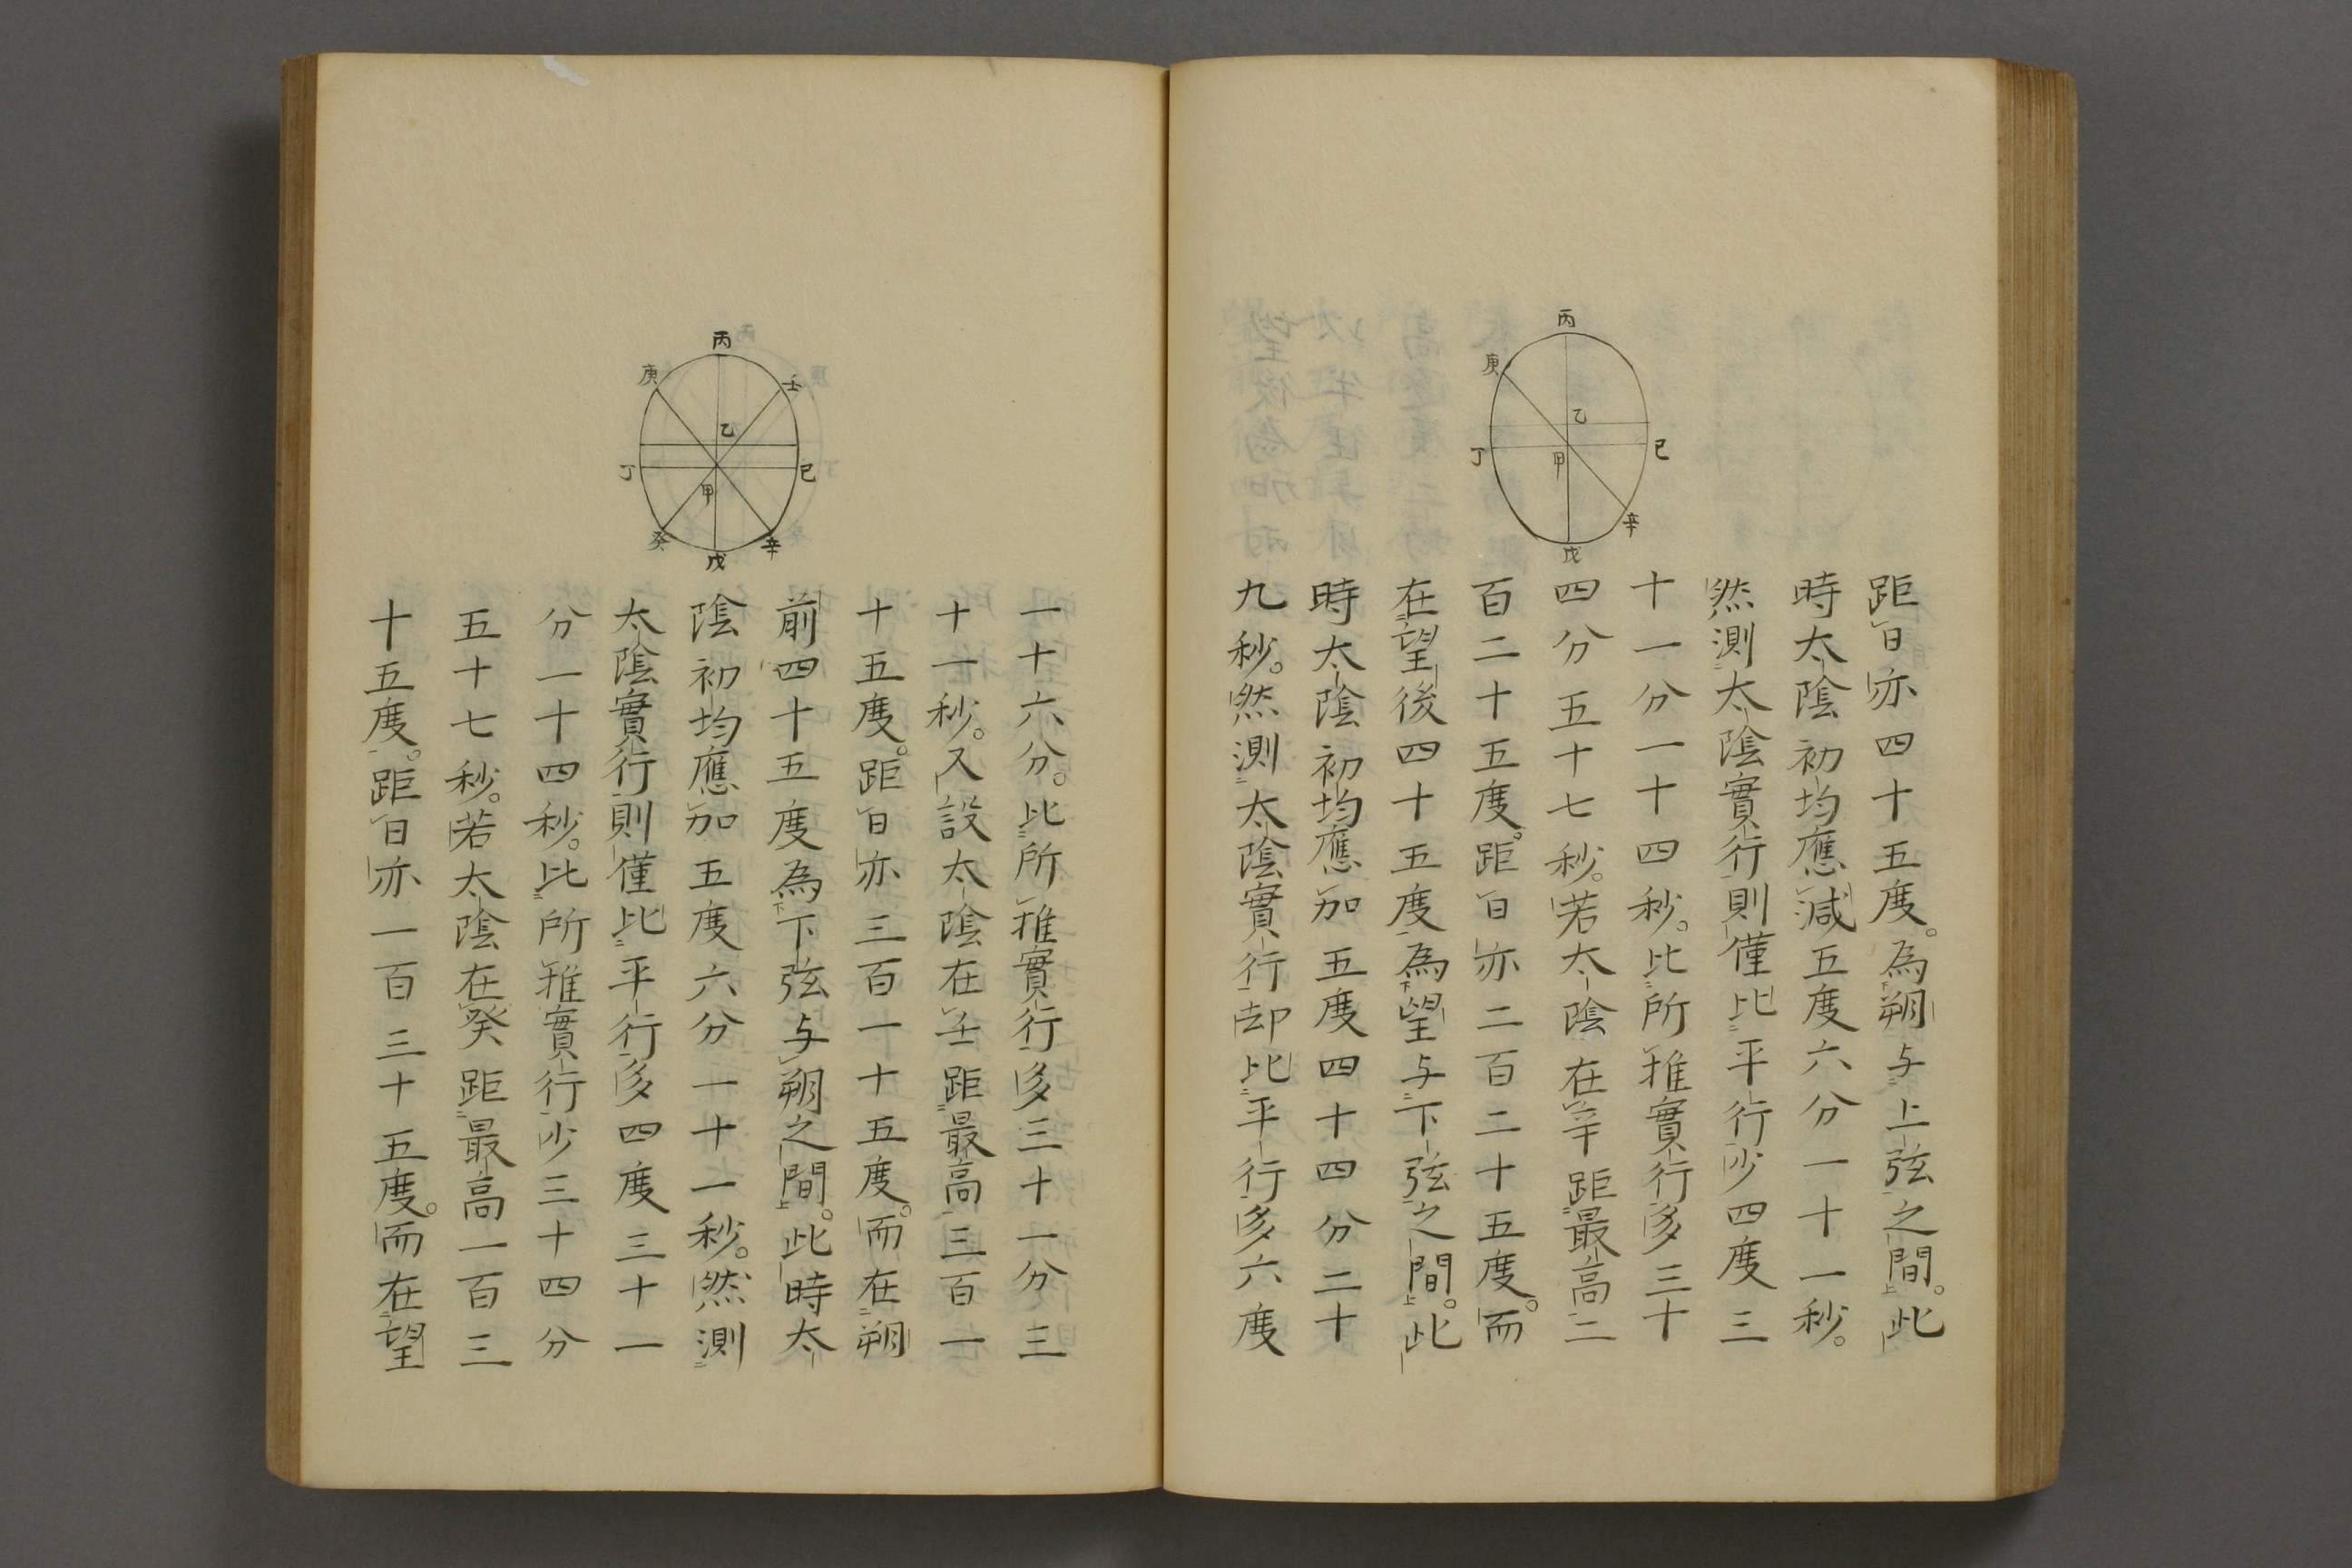 丙
庚
乙
丁
甲
巳
辛
戊
距日亦四十五度。為朔与上弦之間。此
時太陰初均應減五度六分一十一秒。
然測太陰實行則僅比平行少四度三
十一分一十四秒。比所推實行多三十
四分五十七秒。若太陰在辛距最高二
百二十五度。距日亦二百二十五度。而
在望後四十五度為望与下弦之間。此
時太陰初均應加五度四十四分二十
九秒。然測太陰實行却比平行多六度
丙
庚
壬
乙
丁
巳
甲
癸
辛
戊
一十六分。比所推實行多三十一分三
十一秒。又設太陰在壬距最高三百一
十五度。距日亦三百一十五度。而在朔
前四十五度為下弦与朔之間。此時太
陰初均應加五度六分一十一秒。然測
太陰實行則僅比平行多四度三十一
分一十四秒。比所推實行少三十四分
五十七秒。若太陰在癸距最高一百三
十五度。距日亦一百三十五度。而在望